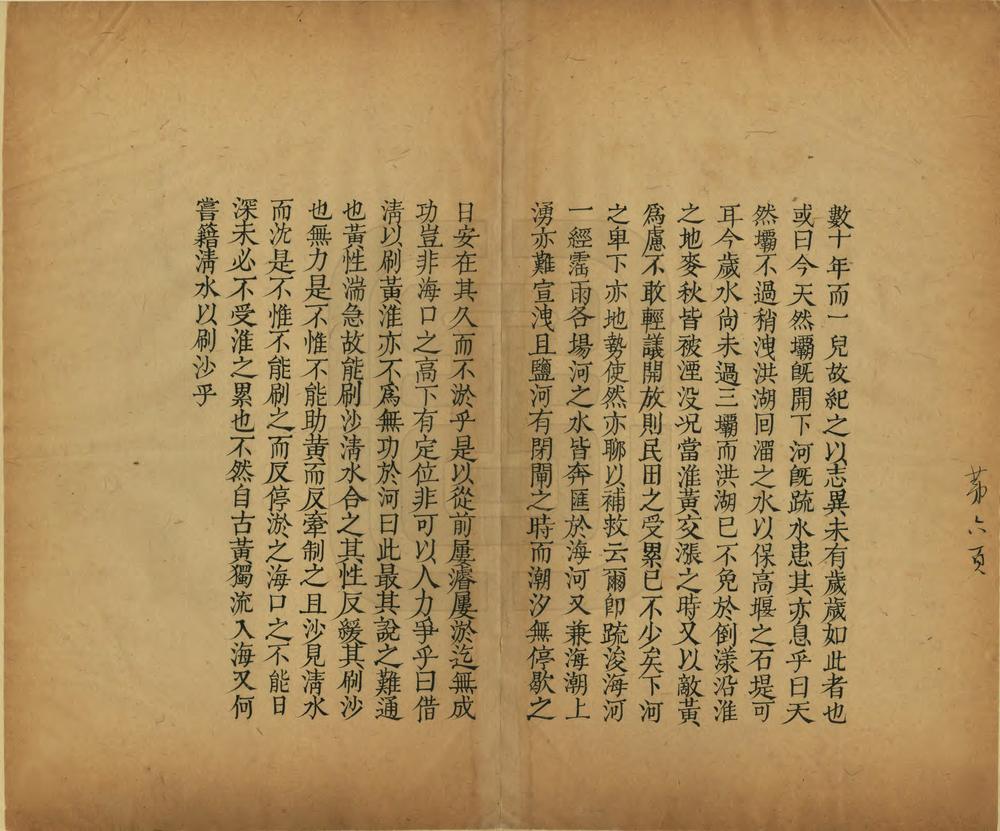 第六頁
數十年而一兒故紀之以志異未有歲歲如此者也
或曰今天然壩旣開下河旣疏水患其亦息乎曰天
然壩不過稍洩洪湖回溜之水以保高堰之石堤可
耳今歲水尙未過三壩而洪湖已不免於倒漾沿淮
之地麥秋皆被湮没况當淮黃交漲之時又以敵黃
爲慮不敢輕議開放則民田之受累已不少矣下河
之卑下亦地勢使然亦聊以補救云爾卽疏浚海河
一經霪雨各場河之水皆奔匯於海河又兼海潮上
湧亦難宣洩且鹽河有閉閘之時而潮汐無停歇之
日安在其久而不淤乎是以從前屢濬屢淤迄無成
功豈非海口之高下有定位非可以人力爭乎曰借
淸以刷黃淮亦不爲無功於河曰此最其說之難通
也黃性湍急故能刷沙淸水合之其性反緩其刷沙
也無力是不惟不能助黃而反牽制之且沙見淸水
而沈是不惟不能刷之而反停淤之海口之不能日
深未必不受淮之累也不然自古黃獨流入海又何
嘗籍淸水以刷沙乎